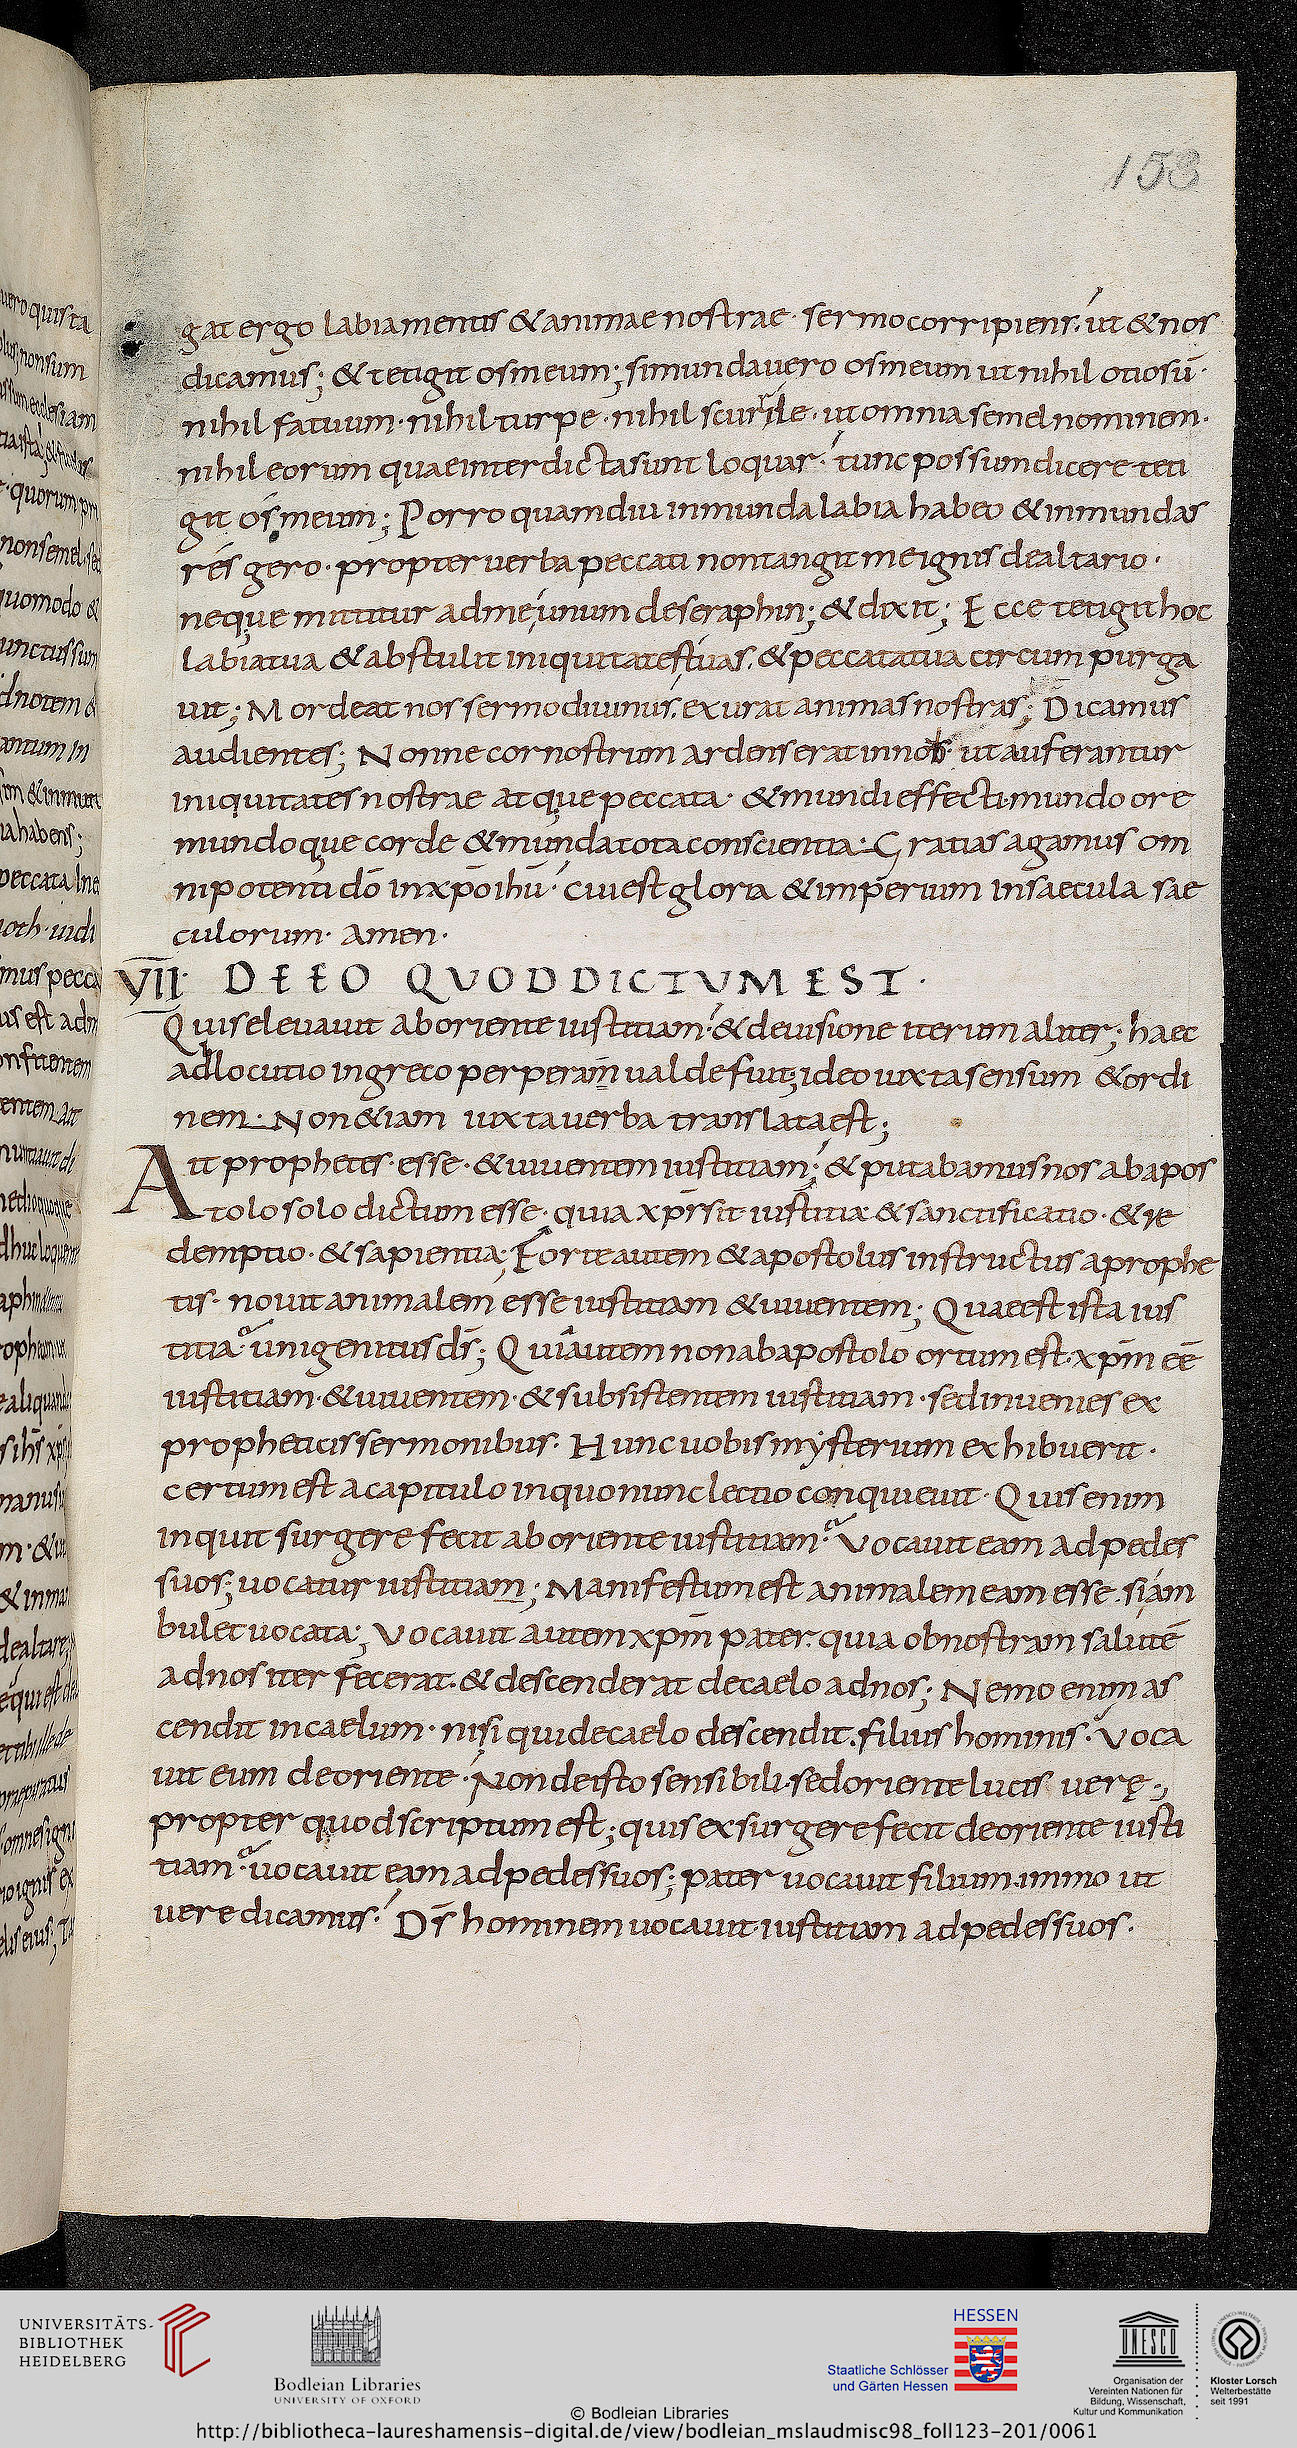 153
gat ergo labia mentis & animae nostrae · sermo corripiens · ut & nos
dicamus ; & tetigit os meum ; si munda uero os meum ut nihil otiosū ·
nihil fatuum · nihil turpe · nihil scurrile · ut omnia semel nominem ·
nihil eorum quae interdicta sunt loquar · tunc possum dicere teti
git os meum ; Porro quamdiu inmunda labia habeo & inmundas
res gero · propter uerba peccati non tangit me ignis de altario ·
neque mittitur ad me unum de seraphin ; & dixit ; Ecce tetigit hoc
labia tua & abstulit iniquitates tuas · & peccata tua circumpurga
uit ; Mordeat nos sermo diuinus · exurat animas nostras ; Dicamus
audientes ; Nonne cor nostrum ardens erat in nob · ut auferantur
iniquitates nostrae atque peccata · & mundi effecti · mundo ore
mundoque corde & munda tota conscientia · Gratias agamus om
nipotenti dō in xpō ihū · cui est gloria & imperium in saecula sae
culorum · amen ·
VII · DE EO QUOD DICTUM EST ·
Quis eleuauit ab oriente iustitiam · & de uisione iterum aliter ; haec
adlocutio in greco perperam ualde fuit ; ideo iuxta sensum & ordi
nem · Non & iam iuxta uerba translata est ;
Ait prophetes · esse · & uiuentem iustitiam ; & putabamus nos ab apos
tolo solo dictum esse · quia xpr̄ sit iustitia & sanctificatio · & re
demptio · & sapientia ; Forte autem & apostolus instructus a prophe
tis · nouit animalem esse iustitiam & uiuentem ; Quae est ista ius
titia · unigenitus dī ; Quia autem non ab apostolo ortum est · xpm̄ eē
iustitiam · & uiuentem · & subsistentem iustitiam · sed inuenies ex
propheticis sermonibus · Hunc uobis mẏsterium exhibuerit ·
certum est a capitulo in quo nunc lectio conquieuit · Quis enim
inquit surgere fecit ab oriente iustitiam · Vocauit eam ad pedes
suos ; uocatur iustitiam ; Manifestum est animalem eam esse · si am
bulet uocata ; Vocauit autem xpm̄ pater · quia ob nostram salutē
ad nos iter fecerat · & descenderat de caelo ad nos ; Nemo enim as
cendit in caelum · nisi qui de caelo descendit · filius hominis · Voca
uit eum de oriente · Non de isto sensibili · sed oriente lucis uerę ;
propter quod scriptum est ; quis exsurgere fecit de oriente iusti
tiam · uocauit eam ad pedes suos ; pater uocauit filium · immo ut
uere dicamus · Dī hominem uocauit iustitiam ad pedes suos ·
UNIVERSITÄTS-
BIBLIOTHEK
HEIDELBERG
Bodleian Libraries
UNIVERSITY OF OXFORD
HESSEN
Staatliche Schlösser
und Gärten Hessen
UNESCO
Organisation der
Vereinten Nationen für
Bildung, Wissenschaft,
Kultur und Kommunikation
Kloster Lorsch
Welterbestätte
seit 1991
© Bodleian Libraries
http://bibliotheca-laureshamensis-digital.de/view/bodleian_mslaudmisc98_foll123-201/0061